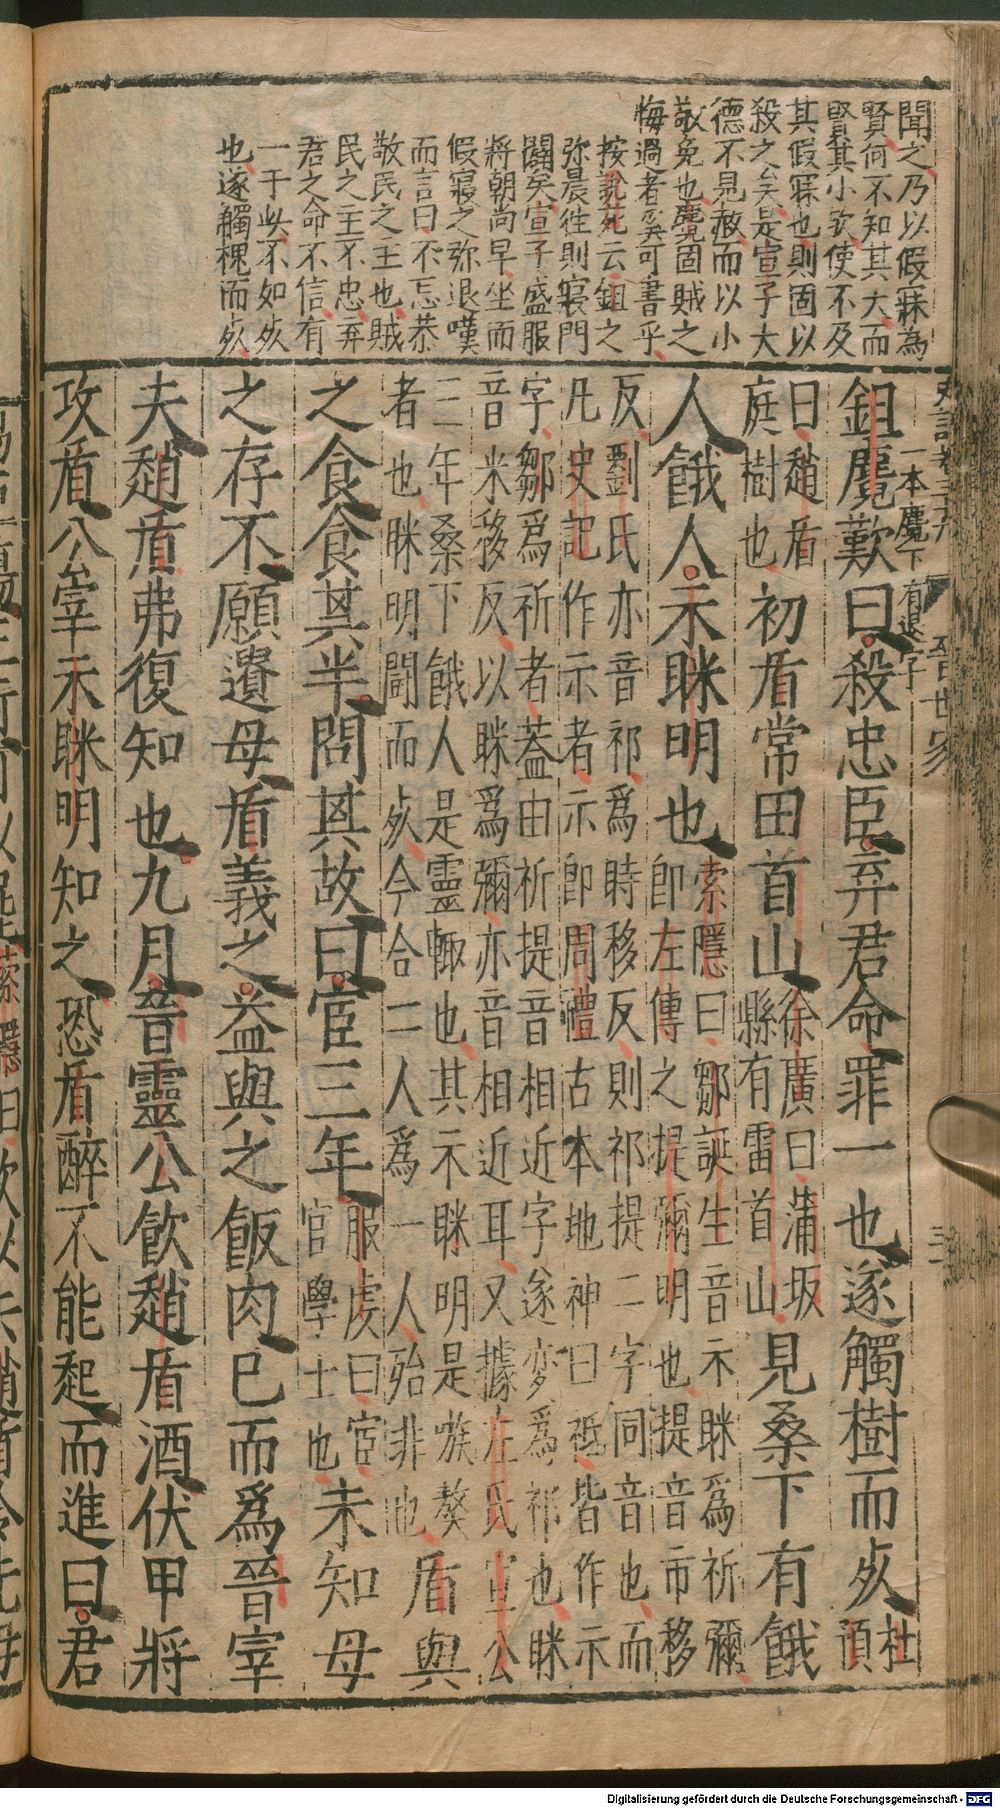 聞之乃以假寐為
賢何不知其大而
賢其小欤使不及
其假寐也則固以
殺之矣是宣子大
德不見赦而以小
敬免也麑固賊之
悔過者矣可書乎
按說苑云鉏之
弥晨往則寢門
闢矣宣子盛服
將朝尚早坐而
假寢之弥退嘆
而言曰不忘恭
敬民之主也賊
民之主不忠弃
君之命不信有
一于此不如死
也遂觸槐而死
晉世家
三
一本麑下有退字
鉏麑歎曰殺忠臣弃君命罪一也遂觸樹而死杜預
曰趙盾庭樹也初盾常田首山徐廣曰蒲坂縣有雷首山見桑下有餓
人餓人示眯明也索隱曰鄒誕生音示眯為祈彌即左傳之提彌明也提音市移
反劉氏亦音祁為時移反則祁提二字同音也而凡史記作示者示即周禮古本地神曰祗皆作示
字鄒為祈者蓋由祈提音相近字遂變為祁也眯音米移反以眯為彌亦音相近耳又據左氏宣公
三年桑下餓人是靈輒也其示眯明是嗾獒者也眯明鬪而死今合二人為一人殆非也盾與
之食食其半問其故曰宦三年服虔曰宦官學士也未知母
之存不願遺母盾義之益與之飯肉已而為晉宰
夫趙盾弗復知也九月晉靈公飲趙盾酒伏甲將
攻盾公宰示眯明知之恐盾醉不能起而進曰君
Digitalisierung gefördert durch die Deutsche Forschungsgemeinschaft - DFG